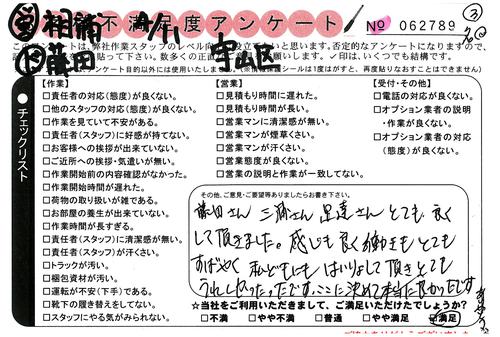 営 相浦 4/11 守山区
作 藤田
不満足度アンケート
№ 062789
③
このアンケートは、弊社作業スタッフのレベル向
アンケート目的以外には使用いたしません。
チェックリスト
【作業】
□責任者の対応(態度)が良くない。
□他のスタッフの対応(態度)が良くない。
□作業を見ていて不安がある。
□責任者(スタッフ)に好感が持てない。
□お客様への挨拶が出来ていない。
□ご近所への挨拶・気遣いが無い。
□作業開始前の内容確認がなかった。
□作業開始時間が遅れた。
□荷物の取り扱いが雑である。
□お部屋の養生が出来ていない。
□作業時間が長すぎる。
□責任者(スタッフ)に清潔感が無い。
□責任者(スタッフ)が汗くさい。
□トラックが汚い。
□梱包資材が汚い。
□運転が不安(下手)である。
□靴下の履き替えをしてない。
□スタッフにやる気がみられない。
【営業】
□見積もり時間に遅れた。
□見積もり時間が長い。
□営業マンに清潔感が無い。
□営業マンが煙草くさい。
□営業マンが汗くさい。
□営業態度が良くない。
□営業の説明と作業が一致してない。
【受付・その他】
□電話の対応が良くない。
□オプション業者の説明
・作業が良くない。
□オプション業者の対応
(態度)が良くない。
その他、ご意見・ご要望等ありましたらお書き下さい。
藤田さん 三浦さん 早達さん とても 良く
して頂きました。感じも良く働きもとても
すばやく 私どもにも はいりょして頂きとても
うれしかったです。ここに決めて本当に良かったです
☆当社をご利用いただきまして、ご満足いただけたでしょうか?
□不満 □やや不満 □普通 □やや満足 ☑満足